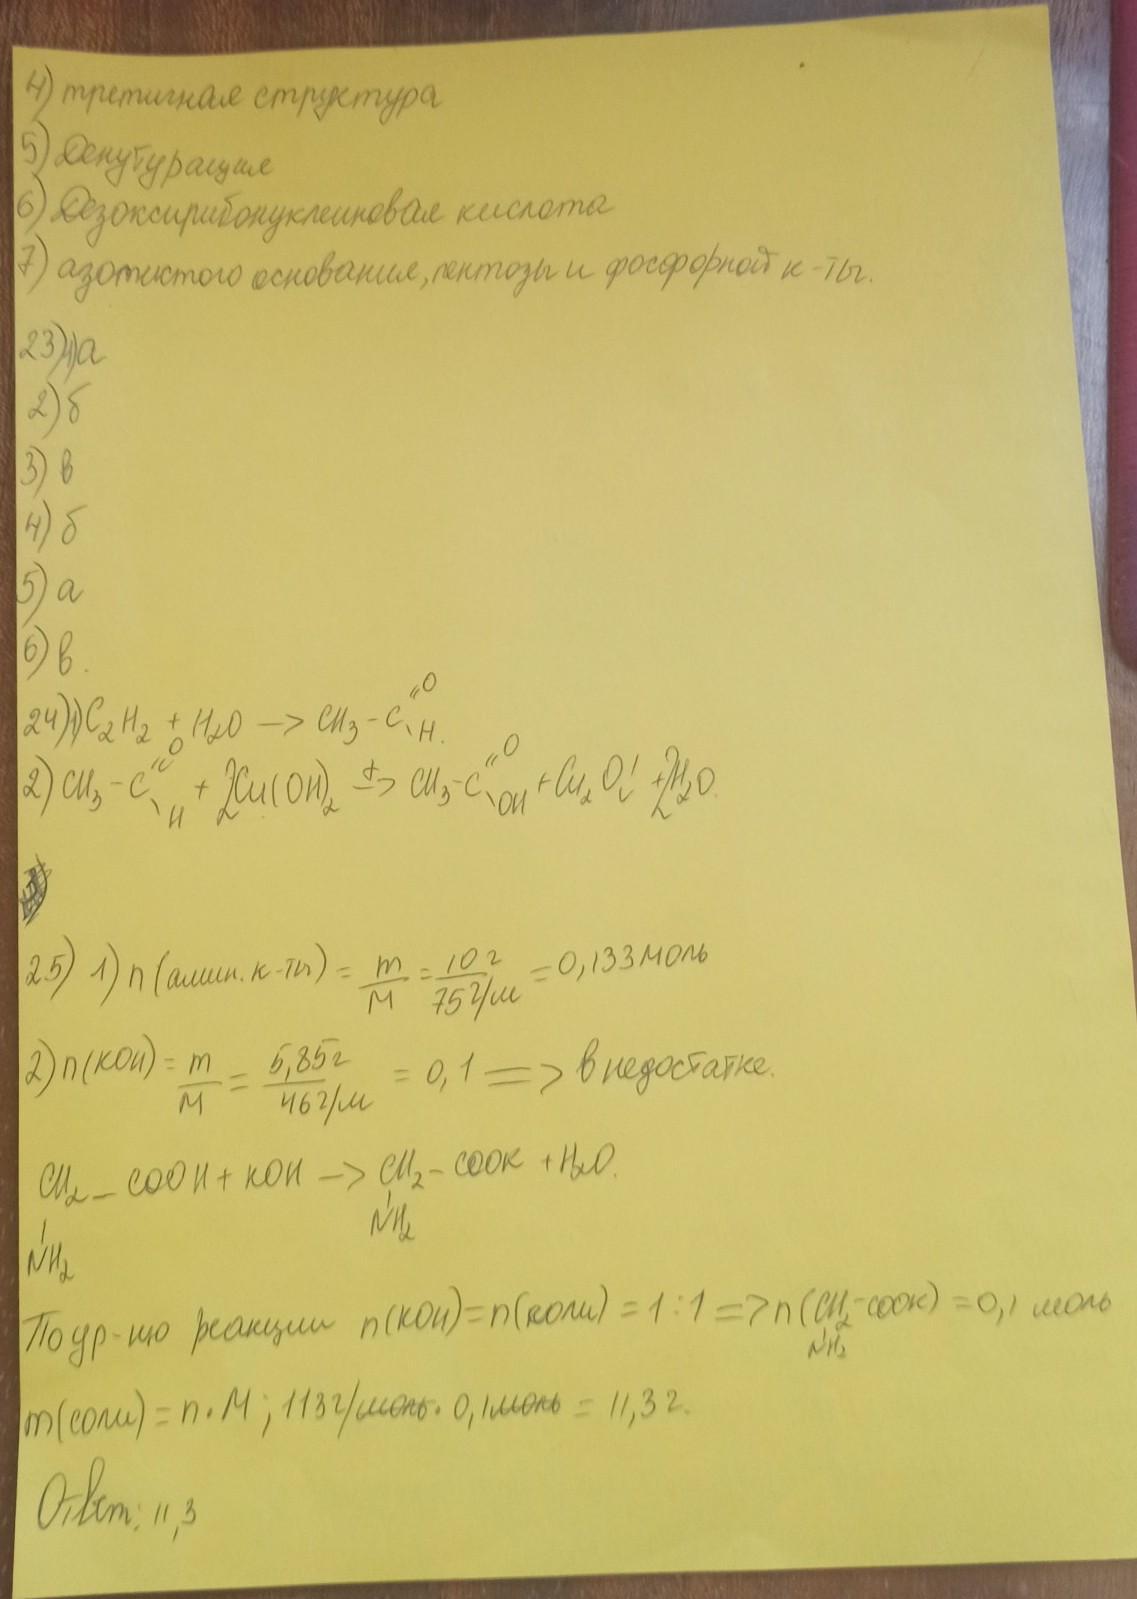 4) третичная структура
5) Денутурация
6) Дезоксирибонуклеиновая кислота
7) азотистого основания, пентозы и фосфорной к-ты.
23) 1) а
2) б
3) в
4) б
5) а
6) в.
24) 1) C2H2 + H2O —> CH3 - C =O \ H.
2) CH3 - C =O \ H + 2Cu(OH)2 t —> CH3 - C =O \ OH + Cu2O↓ + 2H2O.
25) 1) n(амин. к-ты) = m/M = 10г/75г/м = 0,133 моль
2) n(KOH) = m/M = 5,85г/46г/м = 0,1 => в недостатке.
CH2 - COOH + KOH —> CH2 - COOK + H2O.
NH2 NH2
По ур-ню реакции n(KOH) = n(коли) = 1:1 => n(CH2-COOK) = 0,1 моль
NH2
m(соли) = n · M; 113г/моль · 0,1моль = 11,3г.
Ответ: 11,3